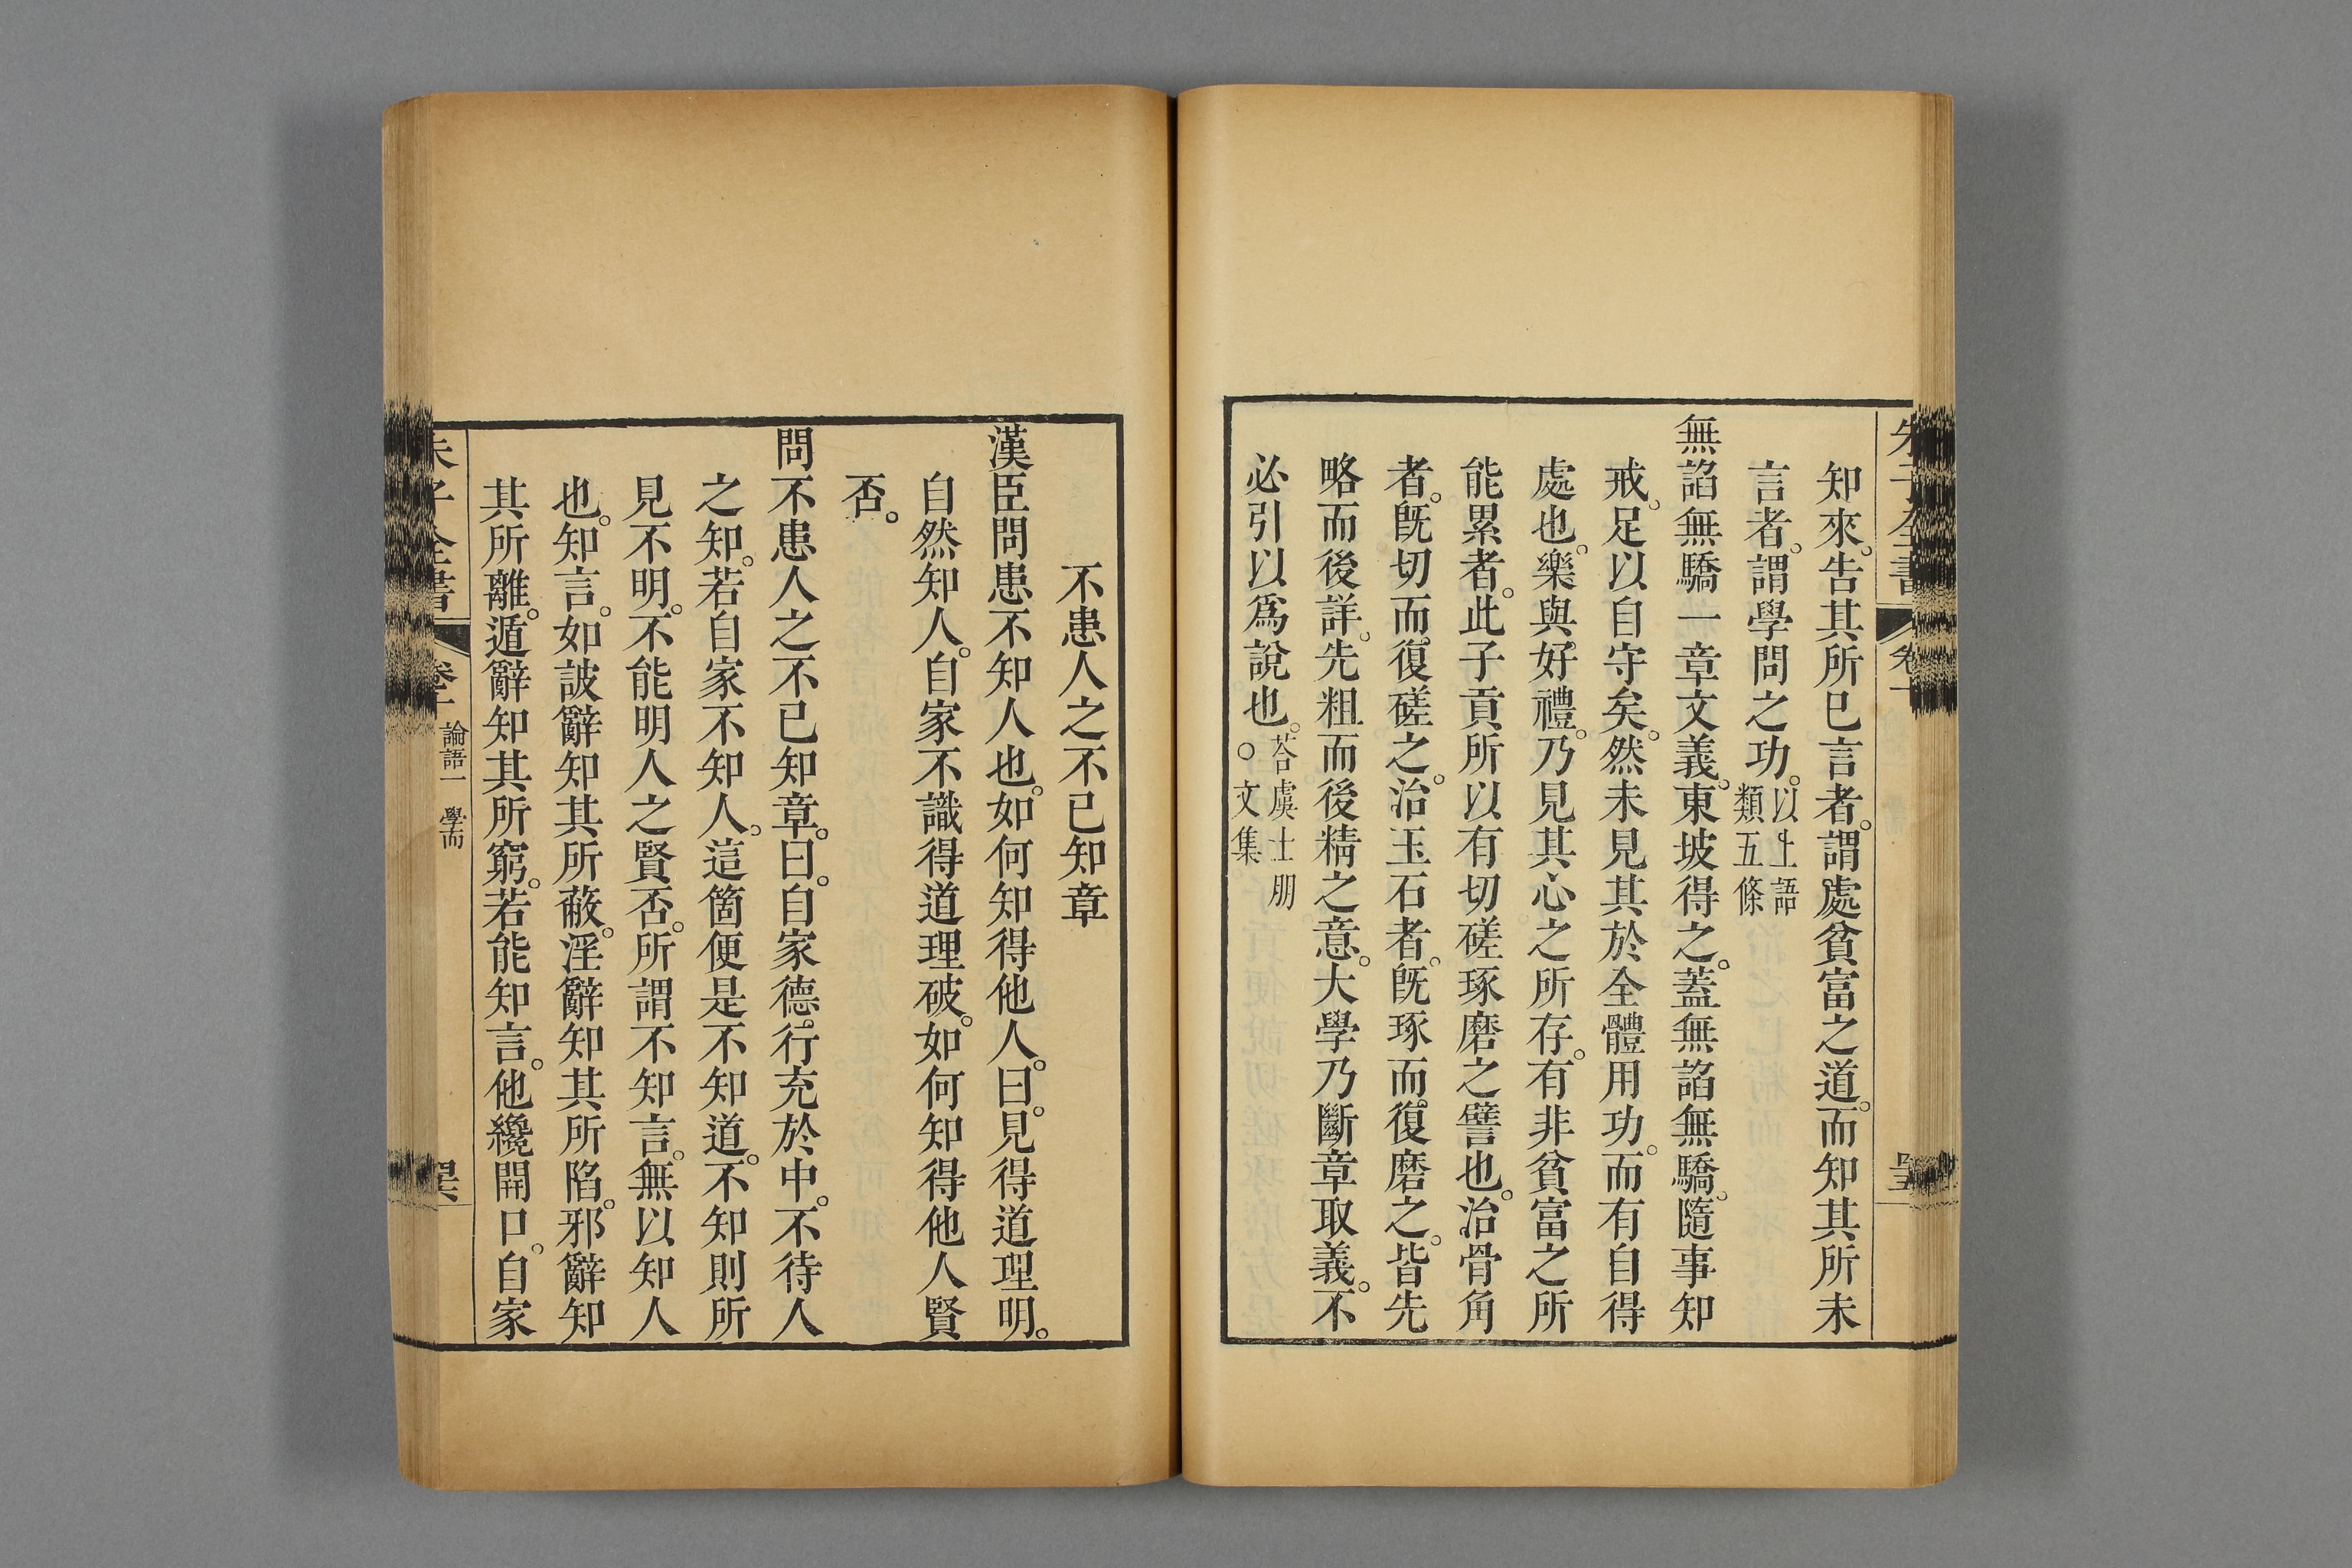 知來。告其所已言者。謂處貧富之道。而知其所未
言者。謂學問之功。以上語類五條
無諂無驕一章文義。東坡得之。蓋無諂無驕。隨事知
戒。足以自守矣。然未見其於全體用功。而有自得
處也。樂與好禮。乃見其心之所存。有非貧富之所
能累者。此子貢所以有切磋琢磨之譬也。治骨角
者。旣切而復磋之。治玉石者。旣琢而復磨之。皆先
略而後詳。先粗而後精之意。大學乃斷章取義。不
必引以爲說也。答虞士朋○文集
不患人之不已知章
漢臣問患不知人也。如何知得他人。曰。見得道理明。
自然知人。自家不識得道理破。如何知得他人賢
否。
問不患人之不已知章。曰。自家德行充於中。不待人
之知。若自家不知人。這箇便是不知道。不知則所
見不明。不能明人之賢否。所謂不知言。無以知人
也。知言。如詖辭知其所蔽。淫辭知其所陷。邪辭知
其所離。遁辭知其所窮。若能知言。他纔開口。自家
朱子全書
論語一 學而